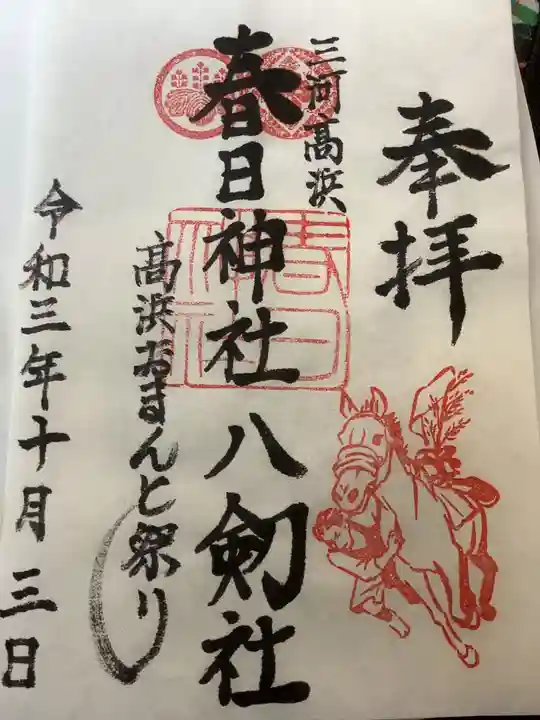 奉拝
三河高浜
春日神社 八剱社
高浜おまんと祭り
令和三年十月三日
春日
神社